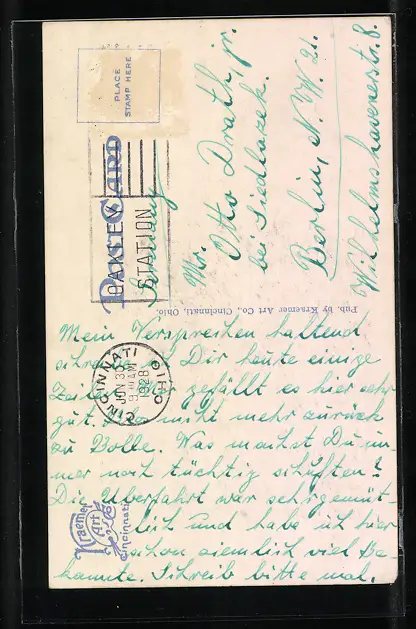 PLACE
STAMP HERE
Post Card
OAKLEY
STATION
Germany
Mr.
Otto Drath, jr.
bei Siedlazek.
Berlin, N.W. 21.
Wilhelmshavenerstr. 8.
Pub. by Kraemer Art Co., Cincinnati, Ohio.
CINCINNATI OHIO
JUN 30
9 AM
1928
2
Mein Versprechen haltend
schreibe Dir heute einige
Zeilen. gefällt es hier sehr
gut. nicht mehr zurück
zu Bolle. Was machst Du im-
mer noch tüchtig schuften?
Die Überfahrt war sehr gemüt-
lich und habe ich hier
schon ziemlich viel Be
kannte. Schreib bitte mal.
Kraemer
Art Co
Cincinnati